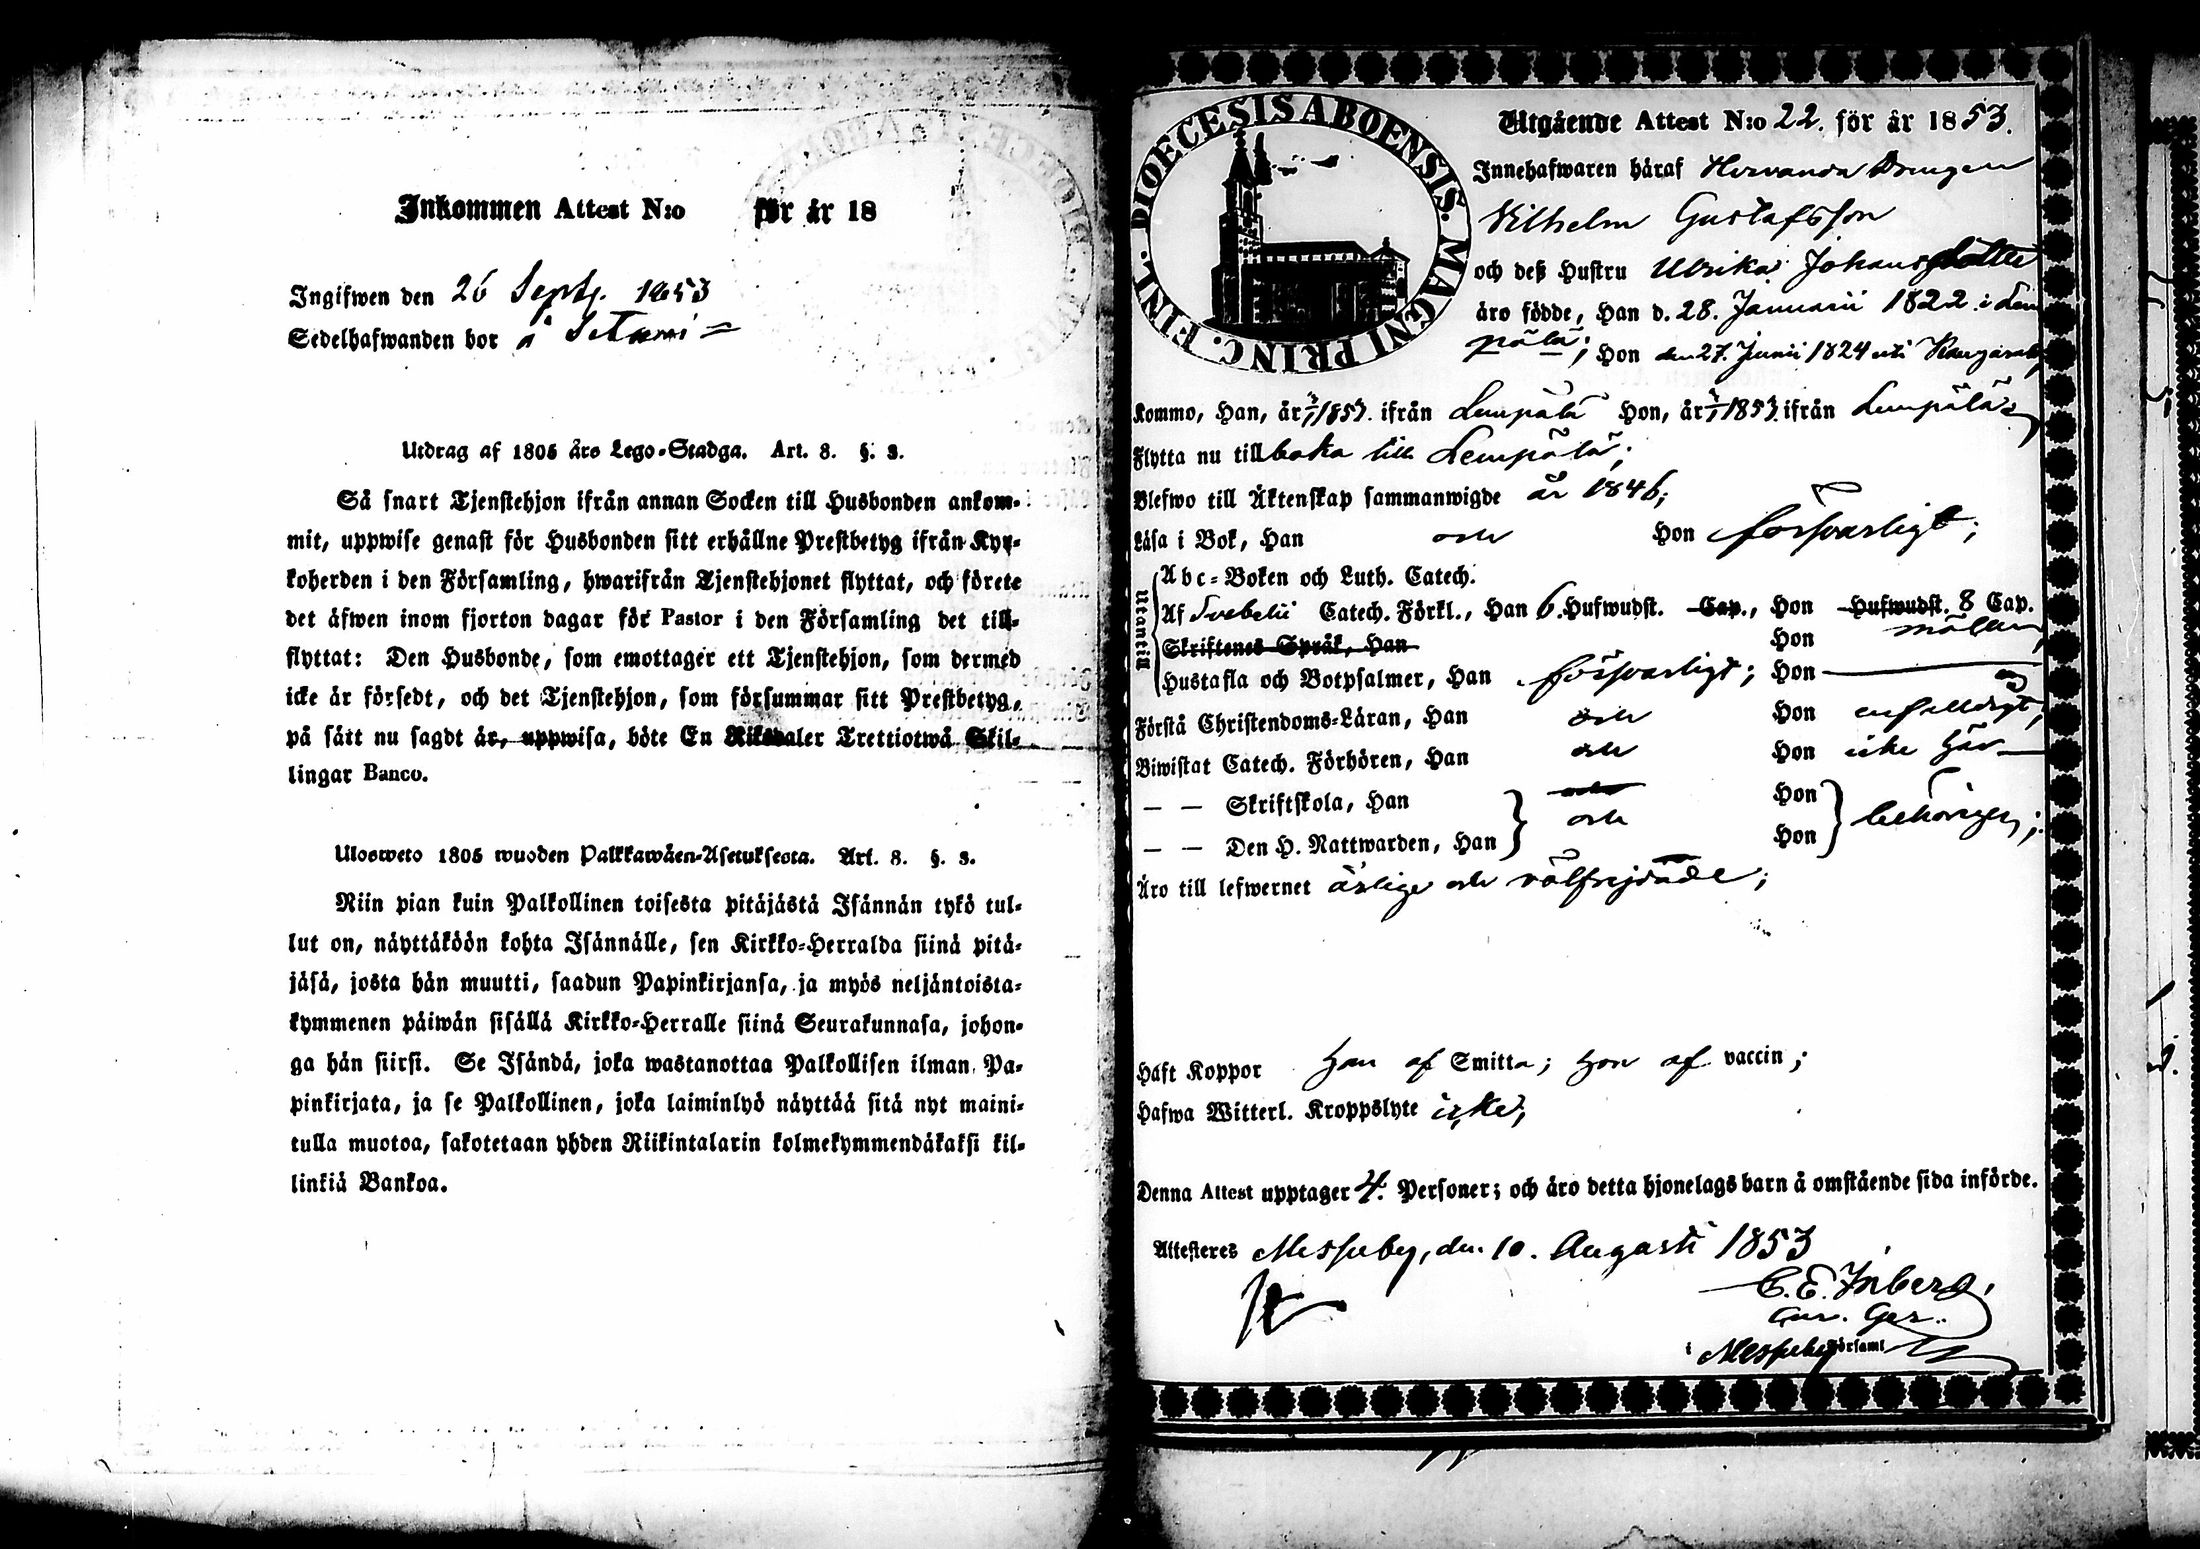 Inkommen Attest N:o för år 18
Ingifwen den 26 Septr. 1853
Sedelhafwanden bor å
Utdrag af 1805 års Lego-Stadga. Art. 8. §. 3.
Så snart Tjenstehjon ifrån annan Socken till Husbonden ankom-
mit, uppwise genast för Husbonden sitt erhållne Prestbetyg ifrån Kyr-
koherden i den Församling, hwarifrån Tjenstehjonet flyttat, och förete
det äfwen inom fjorton dagar för Pastor i den Församling det till-
flyttat: Den Husbonde, som emottager ett Tjenstehjon, som dermed
icke är försedt, och det Tjenstehjon, som försummar sitt Prestbetyg,
på sätt nu sagdt är, uppwisa, böte En Riksdaler Trettiotwå Skil-
lingar Banco.
Ulosweto 1805 wuoden Palkkawäen-Asetuksesta. Art. 8. §. 3.
Niin pian kuin Palkollinen toisesta pitäjästä Isännän tykö tul-
lut on, näyttäköön kohta Isännälle, sen Kirkko-Herralda siinä pitä-
jäsä, josta hän muutti, saadun Papinkirjansa, ja myös neljäntoista-
kymmenen päiwän sisällä Kirkko-Herralle siinä Seurakunnasa, johon-
ga hän siirsi. Se Isändä, joka wastanottaa Palkollisen ilman Pa-
pinkirjata, ja se Palkollinen, joka laiminlyö näyttää sitä nyt maini-
tulla muotoa, sakotetaan yhden Riikintalarin kolmekymmendäkaksi kil-
linkiä Bankoa.
DIOECESIS ABOENSIS. MAGNI PRINC. FINL.
Utgående Attest N:o 22. för år 1853.
Innehafwaren häraf Drengen
Vilhelm Gustafsson
och deß Hustru Ulrika Johansdotter
äro födde, Han d. 28. Januarii 1822 i Lem
pälä; Hon den 27. Junii 1824 uti
Kommo, Han, år 1853. ifrån Lempälä Hon, år 1853 ifrån Lempälä
Flytta nu tillbaka till Lempälä;
Blefwo till Äktenskap sammanwigde år 1846;
Läsa i Bok, Han och Hon försvarligt;
Utantill
Abc-Boken och Luth. Catech.
Af Svebelii Catech. Förkl., Han 6. Hufwudst. Cap., Hon Hufwudst. 8 Cap.
Skriftenes Språk, Han Hon
Hustafla och Botpsalmer, Han försvarligt; Hon
Förstå Christendoms-Läran, Han och Hon enfaldigt;
Biwistat Catech. Förhören, Han och Hon icke här
— — Skriftskola, Han och Hon
— — Den H. Nattwarden, Han och Hon behörigen;
Äro till lefwernet ärlige och välfrejdade;
Haft Koppor Han af Smitta; Hon af vaccin;
Hafwa Witterl. Kroppslyte icke;
Denna Attest upptager 4. Personer; och äro detta hjonelags barn å omstående sida införde.
Attesteres Messuby, den 10. Augusti 1853
C. E. Inberg,
Cur. Ger.
i Messuby Församl